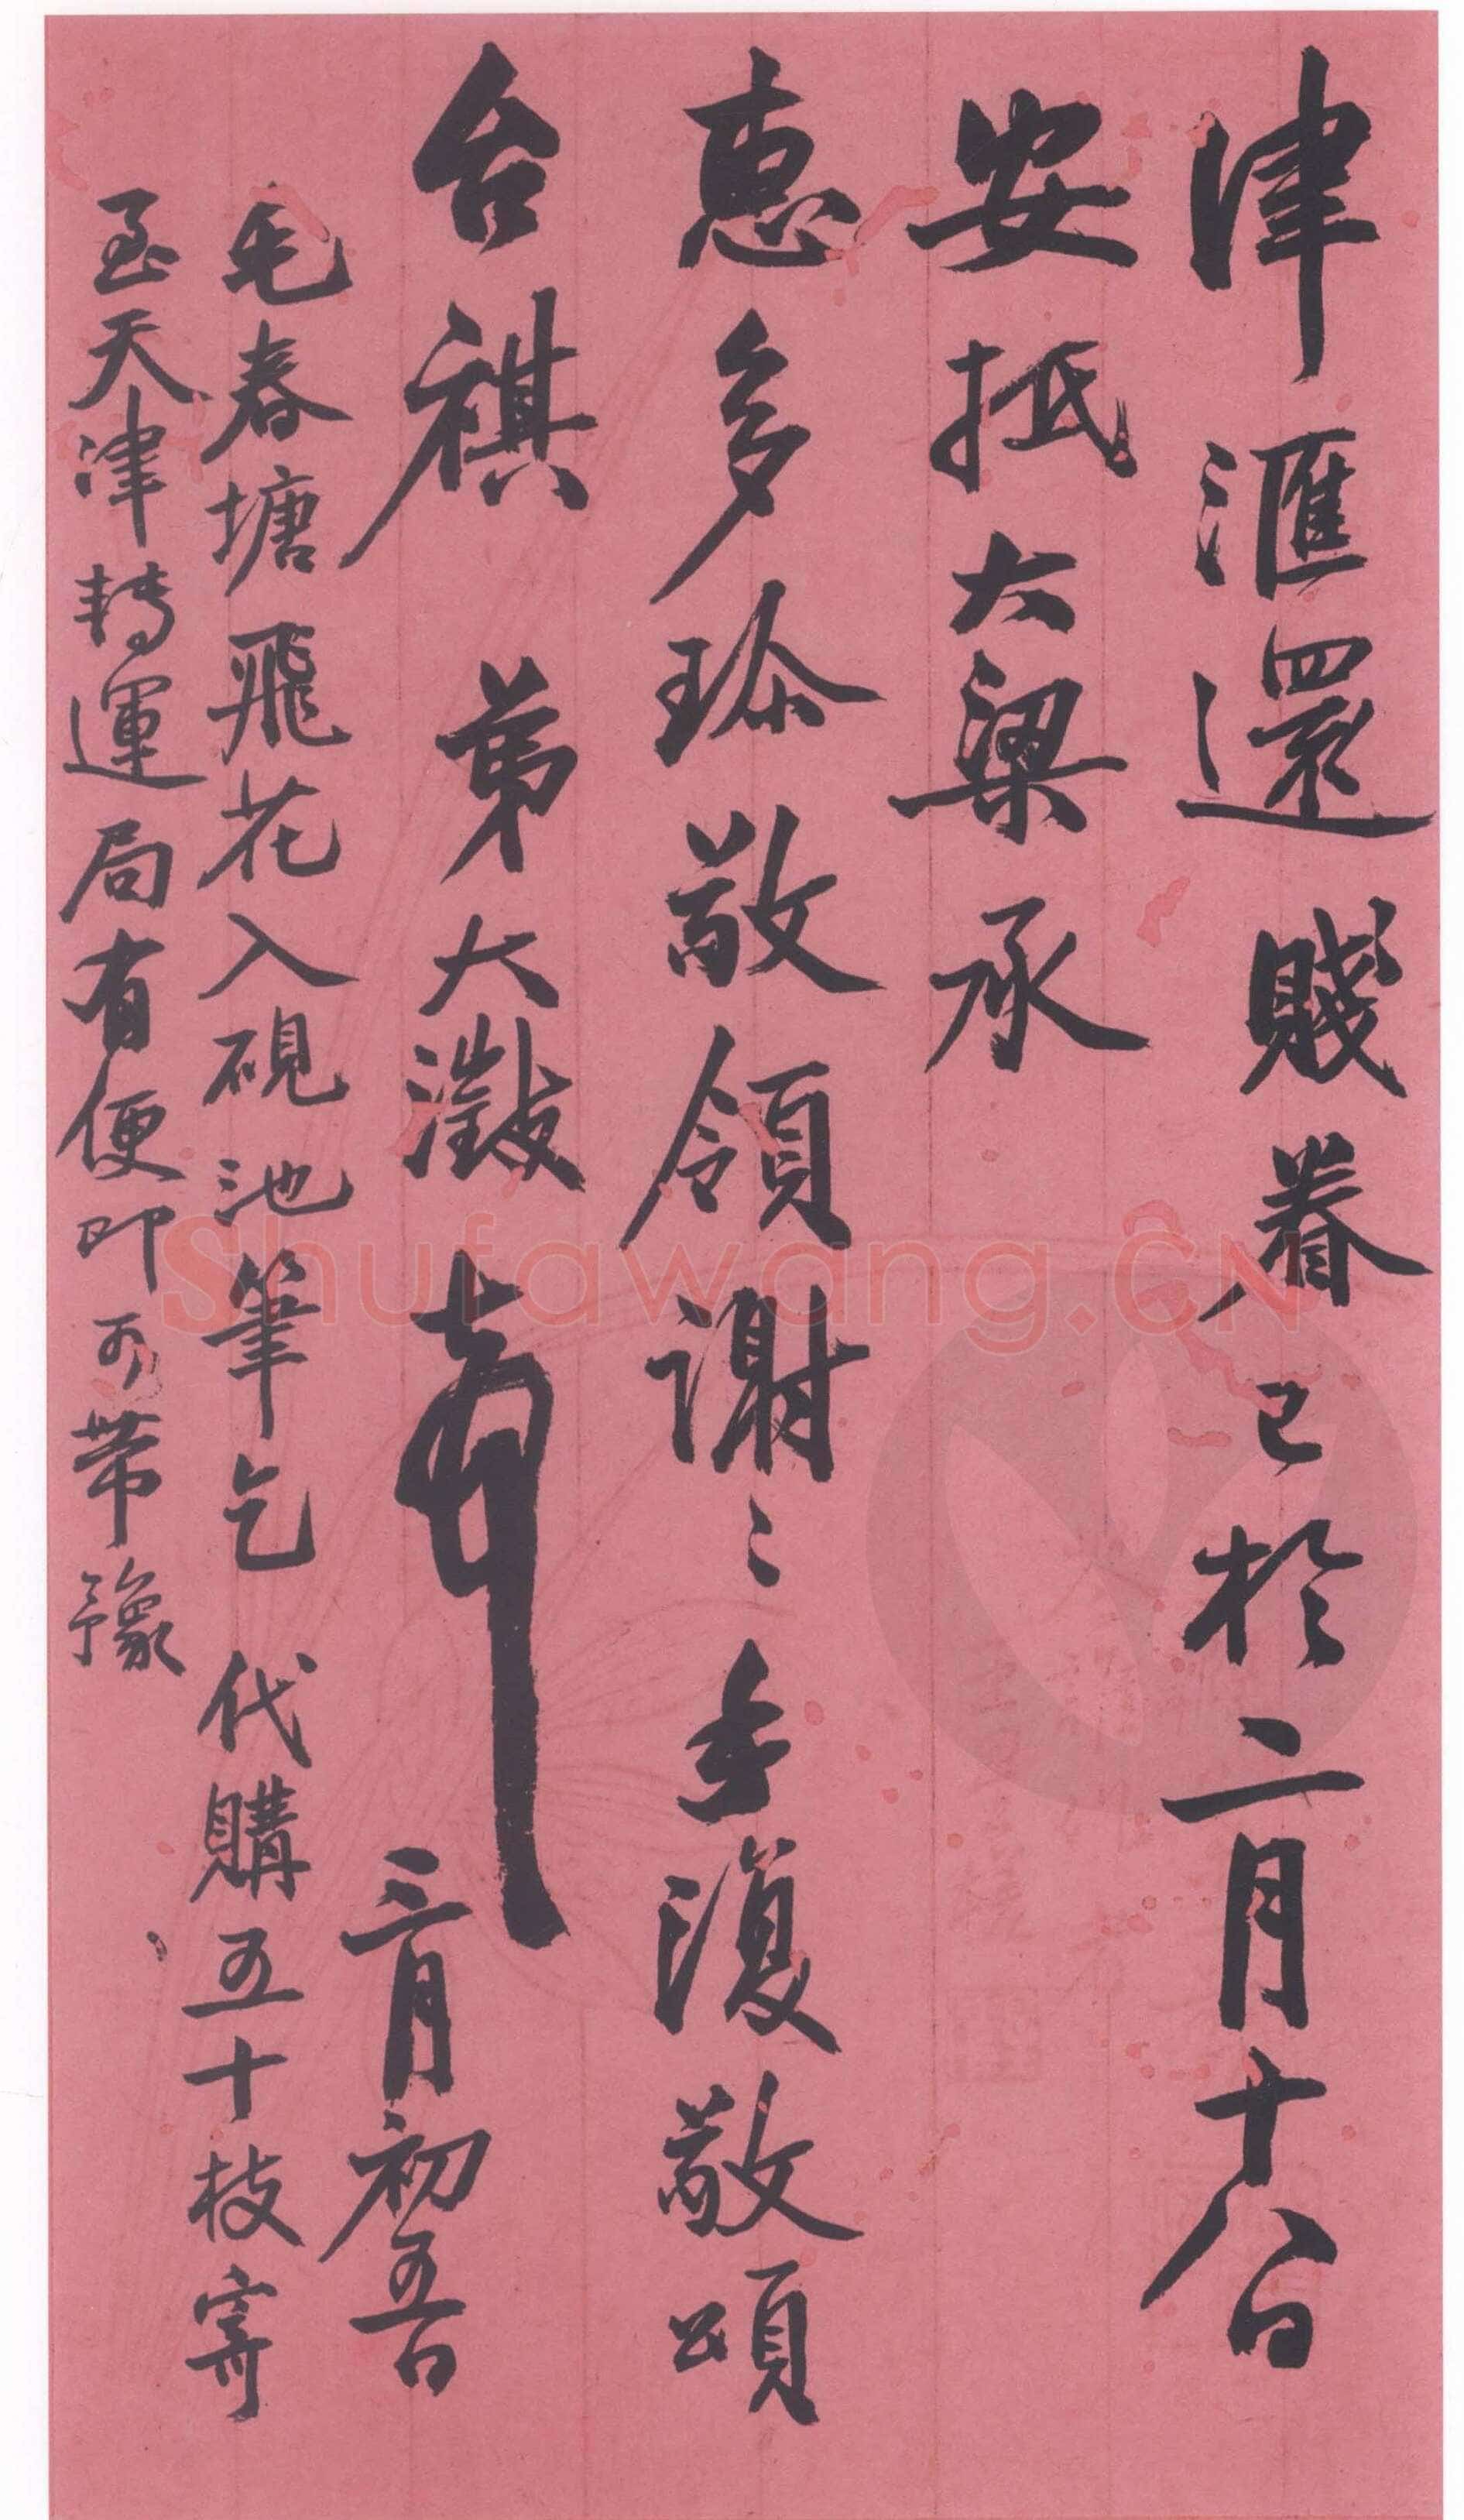 津滙還賤眷已於二月十八日
安抵大梁承
惠多珍敬領謝〻手復敬頌
台祺 弟大澂頓首 三月初五日
毛春塘飛花入硯池筆乞代購五十枝寄
至天津轉運局有便即可帶豫
Shufawang.CN